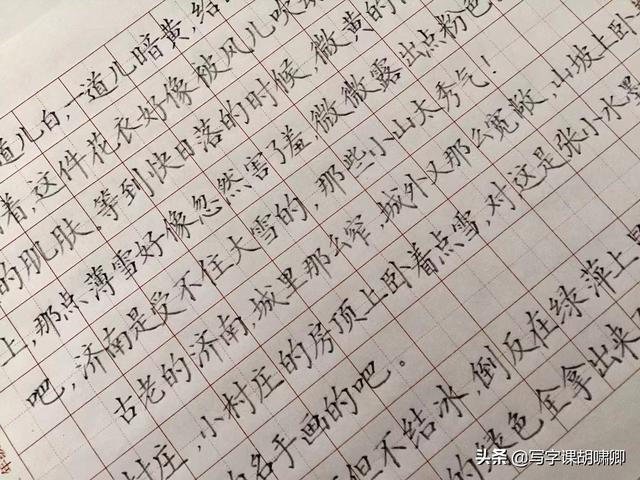 道儿白,一道儿暗黄,给
着,这件花衣好像被风儿吹
的肌肤。等到快日落的时候,微黄的
上,那点薄雪好像忽然害了羞,微微露出点粉色
吧,济南是受不住大雪的,那些小山太秀气!
古老的济南,城里那么窄,城外又那么宽敞,山坡上卧
村庄,小村庄的房顶上卧着点雪,对这是张小水墨
名手画的吧。
但不结冰,倒反在绿萍上
的绿色全拿出来
头条 @写字课胡啸卿